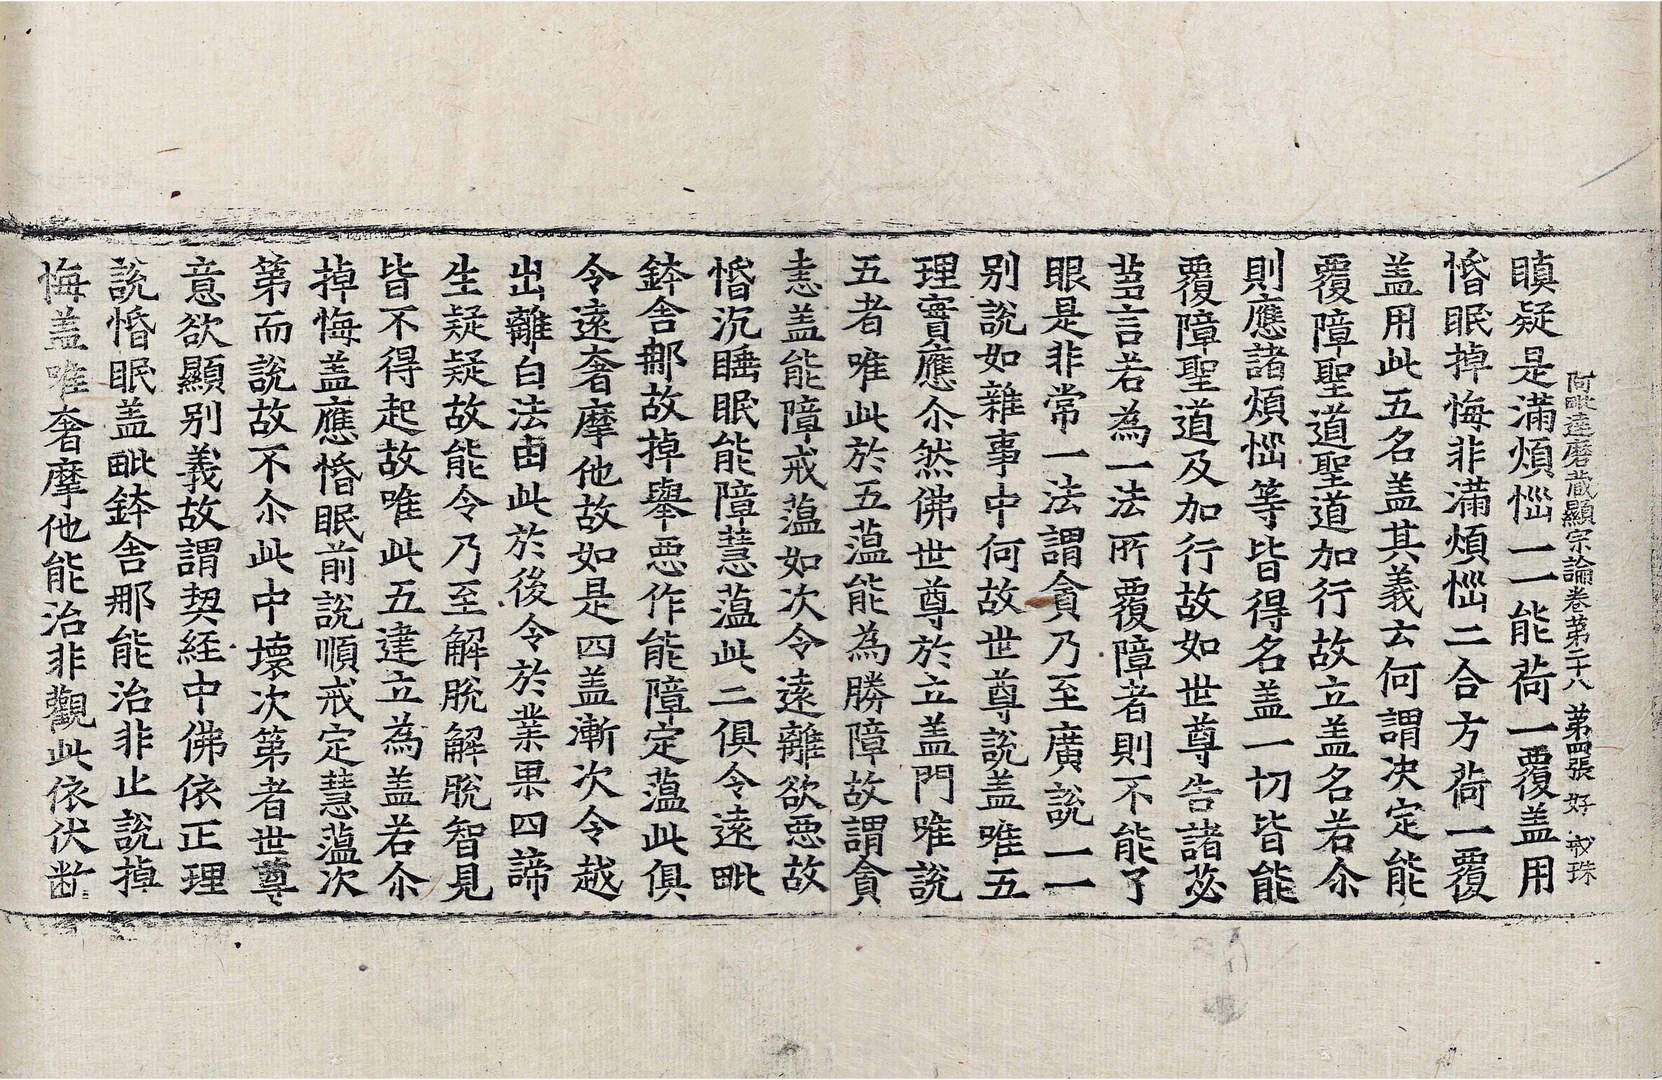 阿毗達磨蔵顯宗論卷第二十八 第四張 好 戒珠
瞋疑是滿煩惱一一能荷一覆盖用
惛眠掉悔非滿煩惱二合方荷一覆
盖用此五名盖其義云何謂决定能
覆障聖道聖道加行故立盖名若尒
則應諸煩惱等皆得名盖一切皆能
覆障聖道及加行故如世尊告諸苾
芻言若為一法所覆障者則不能了
眼是非常一法謂貪乃至廣說一一
别說如雜事中何故世尊說盖唯五
理實應尒然佛世尊於立盖門唯說
五者唯此於五薀能為勝障故謂貪
恚盖能障戒薀如次令遠離欲惡故
惛沉睡眠能障慧薀此二俱令遠毗
鉢舍那故掉舉惡作能障定薀此俱
令遠奢摩他故如是四盖漸次令越
出離白法由此於後令於業果四諦
生疑疑故能令乃至解脫解脫智見
皆不得起故唯此五建立為盖若尒
掉悔盖應惛眠前說順戒定慧薀次
第而說故不尒此中壞次第者世尊
意欲顯别義故謂契經中佛依正理
說惛眠盖毗鉢舍那能治非止說掉
悔盖唯奢摩他能治非觀此依伏斷